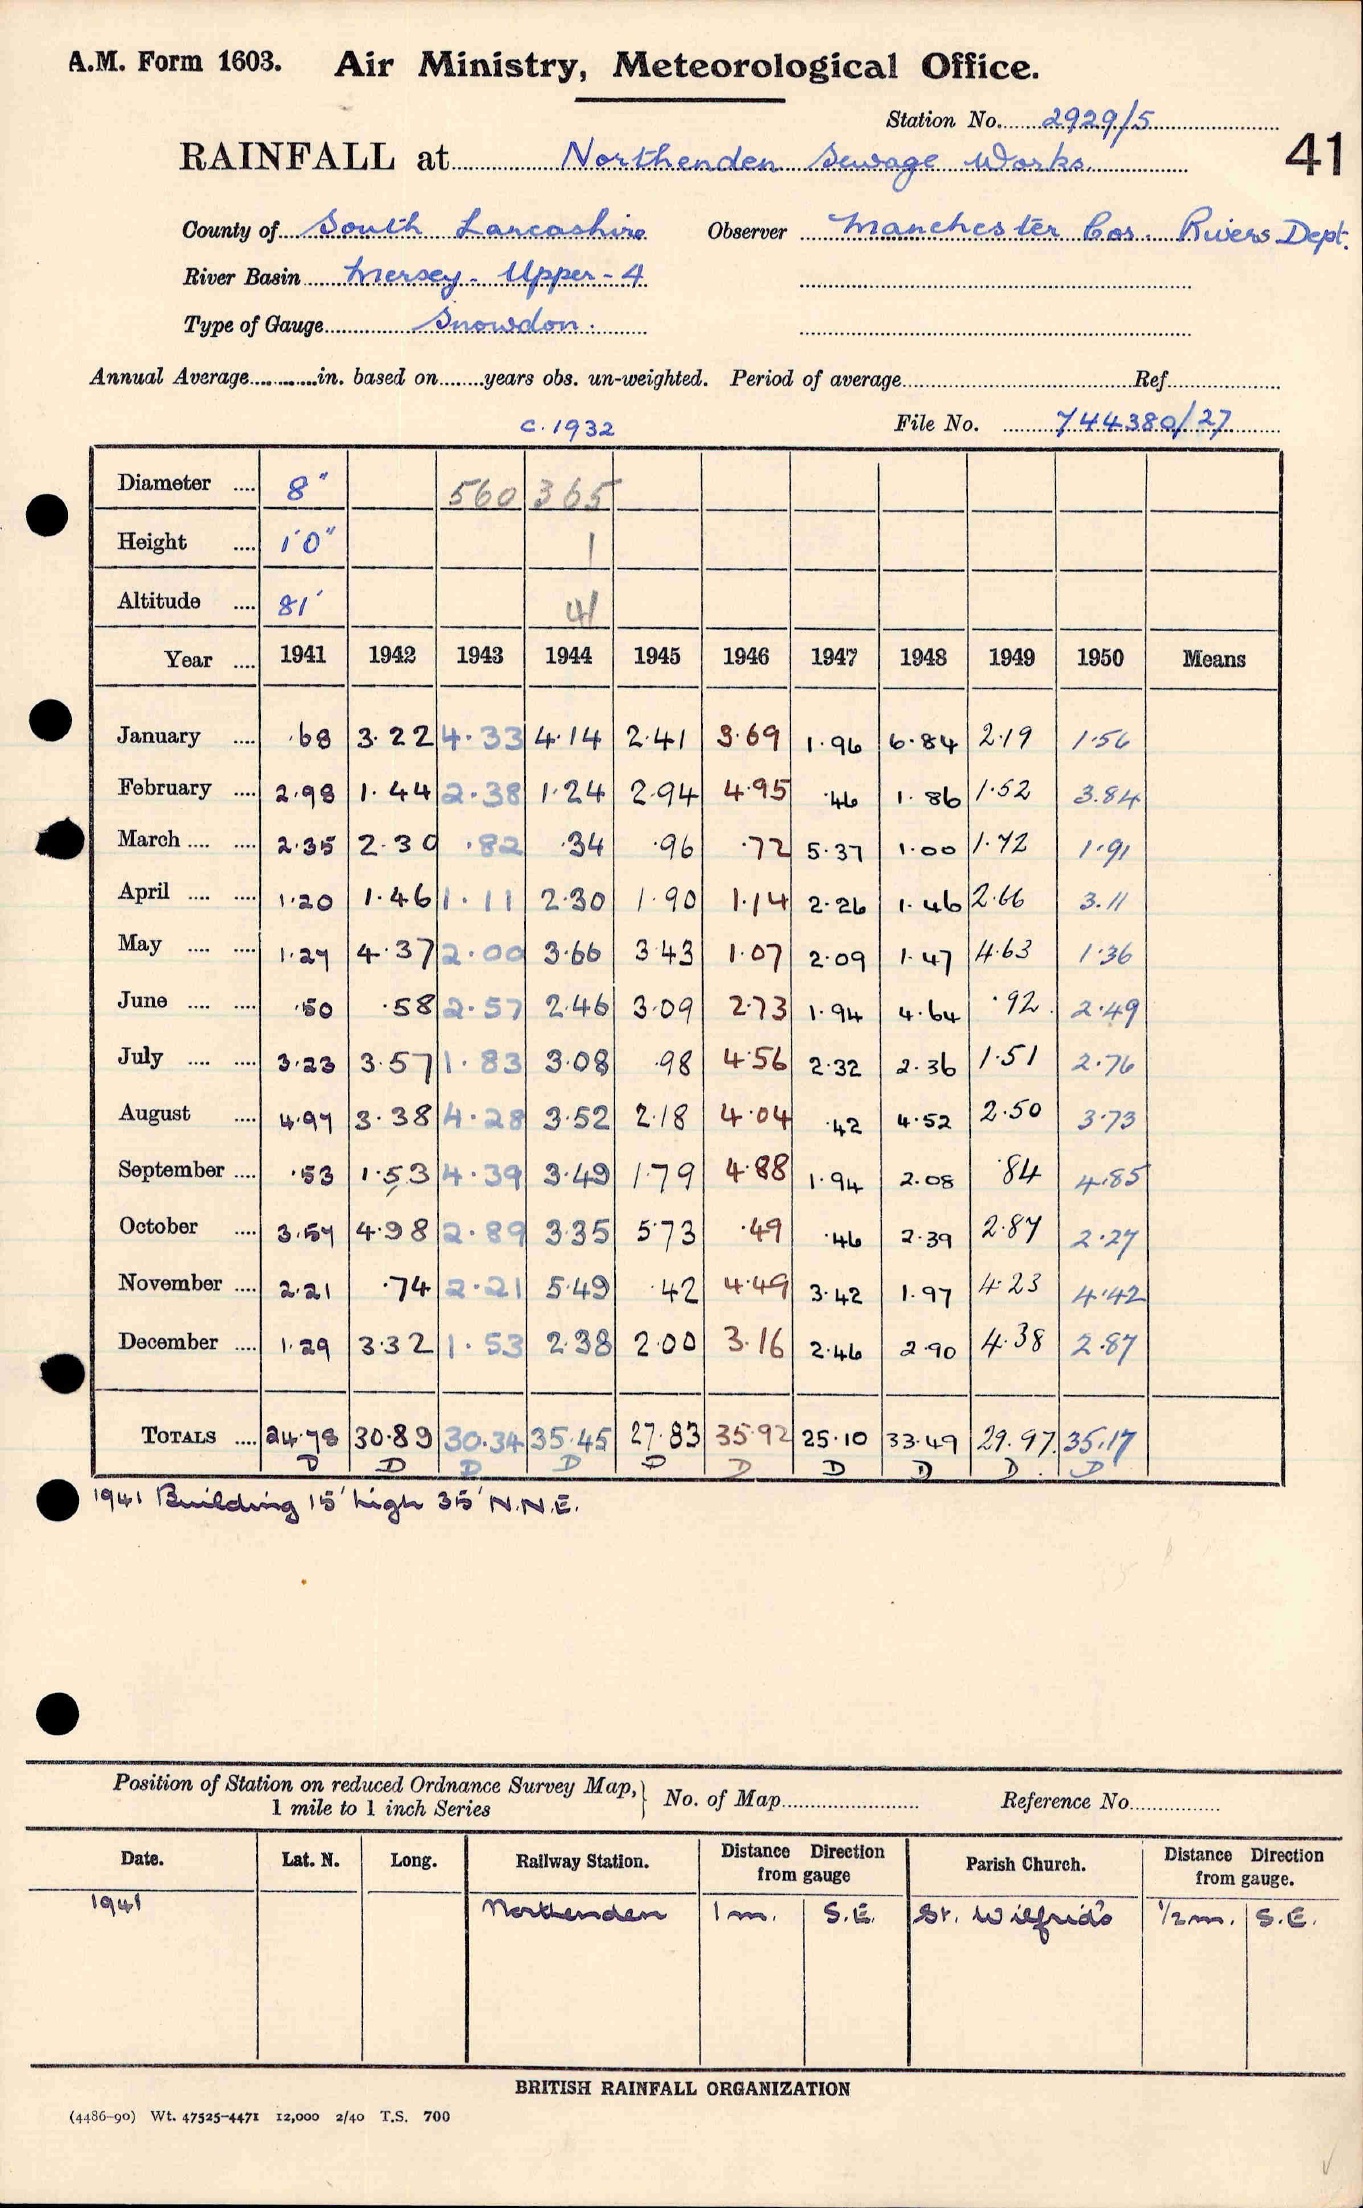 A.M. Form 1603. Air Ministry, Meteorological Office.
Station No. 2929/5
41
RAINFALL at Northenden Sewage Works.
County of South Lancashire Observer Manchester Cor. Rivers Dept.
River Basin Mersey - Upper - 4
Type of Gauge Snowdon.
Annual Average............in. based on........years obs. un-weighted. Period of average............ Ref............
c. 1932 File No. 744380/27
Diameter .... 8" 560 365
Height .... 1'0" 1
Altitude .... 81' 41
Year .... 1941 1942 1943 1944 1945 1946 1947 1948 1949 1950 Means
January .... .68 3.22 4.33 4.14 2.41 3.69 1.96 6.84 2.19 1.56
February .... 2.98 1.44 2.38 1.24 2.94 4.95 .46 1.86 1.52 3.84
March .... .... 2.35 2.30 .82 .34 .96 .72 5.37 1.00 1.72 1.91
April .... .... 1.20 1.46 1.11 2.30 1.90 1.14 2.26 1.46 2.66 3.11
May .... .... 1.27 4.37 2.00 3.66 3.43 1.07 2.09 1.47 4.63 1.36
June .... .... .50 .58 2.57 2.46 3.09 2.73 1.94 4.64 .92 2.49
July .... .... 3.23 3.57 1.83 3.08 .98 4.56 2.32 2.36 1.51 2.76
August .... 4.97 3.38 4.28 3.52 2.18 4.04 .42 4.52 2.50 3.73
September .... .53 1.53 4.39 3.49 1.79 4.88 1.94 2.08 .84 4.85
October .... 3.57 4.98 2.89 3.35 5.73 .49 .46 2.39 2.87 2.27
November .... 2.21 .74 2.21 5.49 .42 4.49 3.42 1.97 4.23 4.42
December .... 1.29 3.32 1.53 2.38 2.00 3.16 2.46 2.90 4.38 2.87
TOTALS .... 24.78 30.89 30.34 35.45 27.83 35.92 25.10 33.49 29.97 35.17
D D D D D D D D D D
1941 Building 15' high 35' N.N.E.
Position of Station on reduced Ordnance Survey Map, No. of Map............ Reference No............
1 mile to 1 inch Series
Date. Lat. N. Long. Railway Station. Distance Direction from gauge Parish Church. Distance Direction from gauge.
1941 Northenden 1 m. S.E. St. Wilfrid's 1/2 m. S.E.
BRITISH RAINFALL ORGANIZATION
(4486-90) Wt. 47525-4471 12,000 2/40 T.S. 700